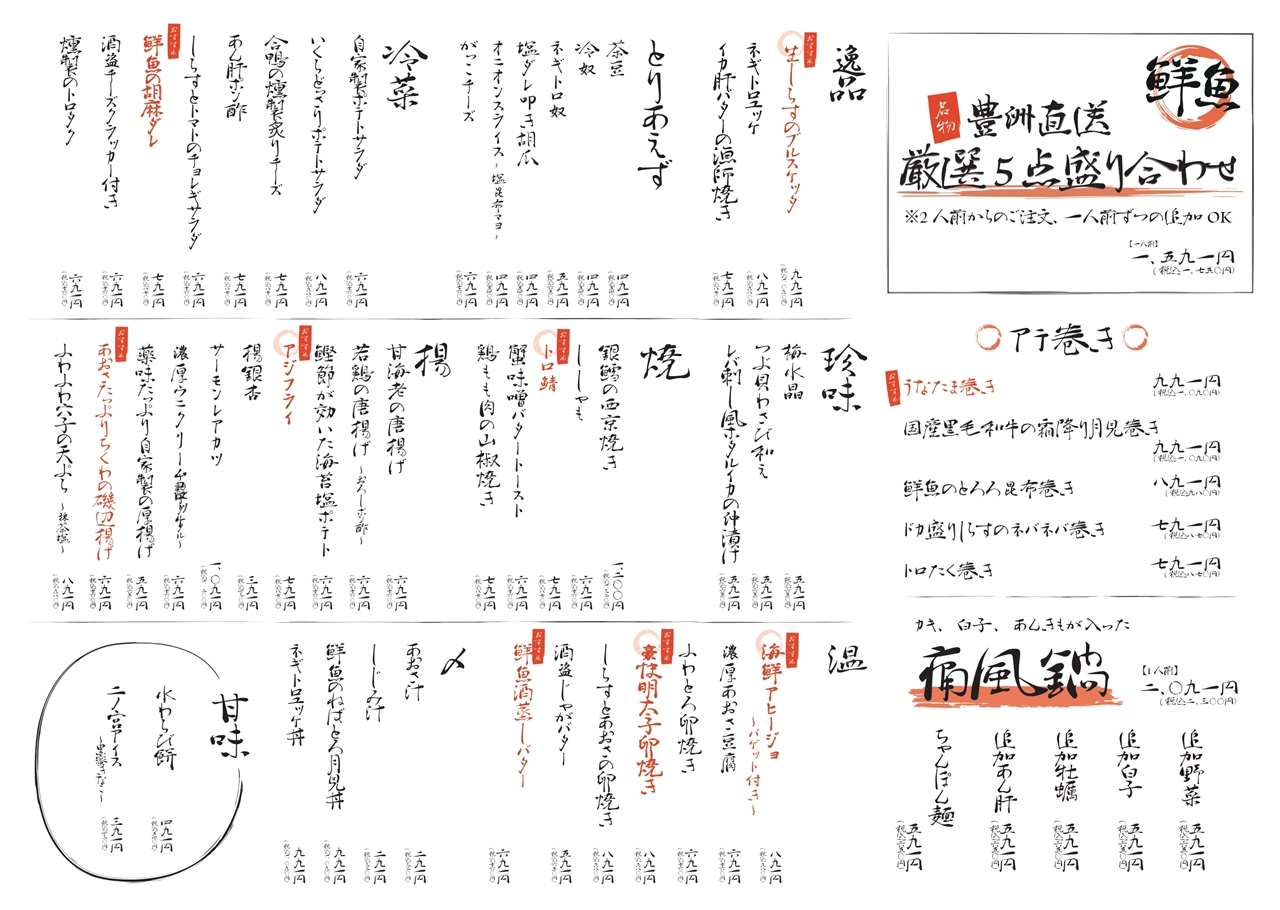 鮮魚
名物
豊洲直送
厳選5点盛り合わせ
※2人前からのご注文、一人前ずつの追加OK
【一人前】
一、五九一円
(税込一、七五〇円)
アテ巻き
おすすめ
うなたま巻き
九九一円
(税込一、〇九〇円)
国産黒毛和牛の霜降り月見巻き
九九一円
(税込一、〇九〇円)
鮮魚のとろろ昆布巻き
八九一円
(税込九八〇円)
ドカ盛りしらすのネバネバ巻き
七九一円
(税込八七〇円)
トロたく巻き
七九一円
(税込八七〇円)
カキ、白子、あんきもが入った
痛風鍋
【1人前】
二、〇九一円
(税込二、三〇〇円)
追加野菜
五九一円
(税込六五〇円)
追加白子
五九一円
(税込六五〇円)
追加牡蠣
五九一円
(税込六五〇円)
追加あん肝
五九一円
(税込六五〇円)
ちゃんぽん麺
五九一円
(税込六五〇円)
逸品
おすすめ
生しらすのブルスケッタ
九九一円
ネギトロユッケ
八九一円
イカ肝バターの漁師焼き
七九一円
とりあえず
茶豆
四九一円
冷奴
四九一円
ネギトロ奴
五九一円
塩ダレ叩き胡瓜
四九一円
オニオンスライス~塩昆布マヨ~
四九一円
がっこチーズ
六九一円
冷菜
自家製ポテトサラダ
六九一円
いくらどっさりポテトサラダ
八九一円
合鴨の燻製炙りチーズ
七九一円
あん肝ポン酢
七九一円
しらすとトマトのチョレギサラダ
六九一円
おすすめ
鮮魚の胡麻ダレ
七九一円
酒盗チーズクラッカー付き
六九一円
燻製のトロタク
六九一円
珍味
梅水晶
五九一円
つぶ貝わさび和え
五九一円
レバ刺し風ホタルイカの沖漬け
五九一円
焼
銀鱈の西京焼き
一、二〇〇円
ししゃも
六九一円
おすすめ
トロ鯖
七九一円
蟹味噌バタートースト
六九一円
鶏もも肉の山椒焼き
七九一円
揚
甘海老の唐揚げ
六九一円
若鶏の唐揚げ ~おろしポン酢~
六九一円
鰹節が効いた海苔塩ポテト
六九一円
おすすめ
アジフライ
七九一円
揚銀杏
三九一円
サーモンレアカツ
一、〇九一円
濃厚ウニクリーム
六九一円
薬味たっぷり自家製の厚揚げ
五九一円
おすすめ
あおさたっぷりちくわの磯辺揚げ
六九一円
ふわふわ穴子の天ぷら ~抹茶塩~
八九一円
温
おすすめ
海鮮アヒージョ
~バゲット付き~
八九一円
濃厚あおさ豆腐
六九一円
ふわとろ卵焼き
六九一円
おすすめ
豪快明太子卵焼き
八九一円
しらすとあおさの卵焼き
八九一円
酒盗じゃがバター
五九一円
おすすめ
鮮魚酒蒸しバター
六九一円
〆
あおさ汁
二九一円
しじみ汁
二九一円
鮮魚のねばとろ月見丼
九九一円
ネギトロユッケ丼
九九一円
甘味
水わらび餅
四九一円
二ノ宮アイス
~黒蜜きなこ~
三九一円